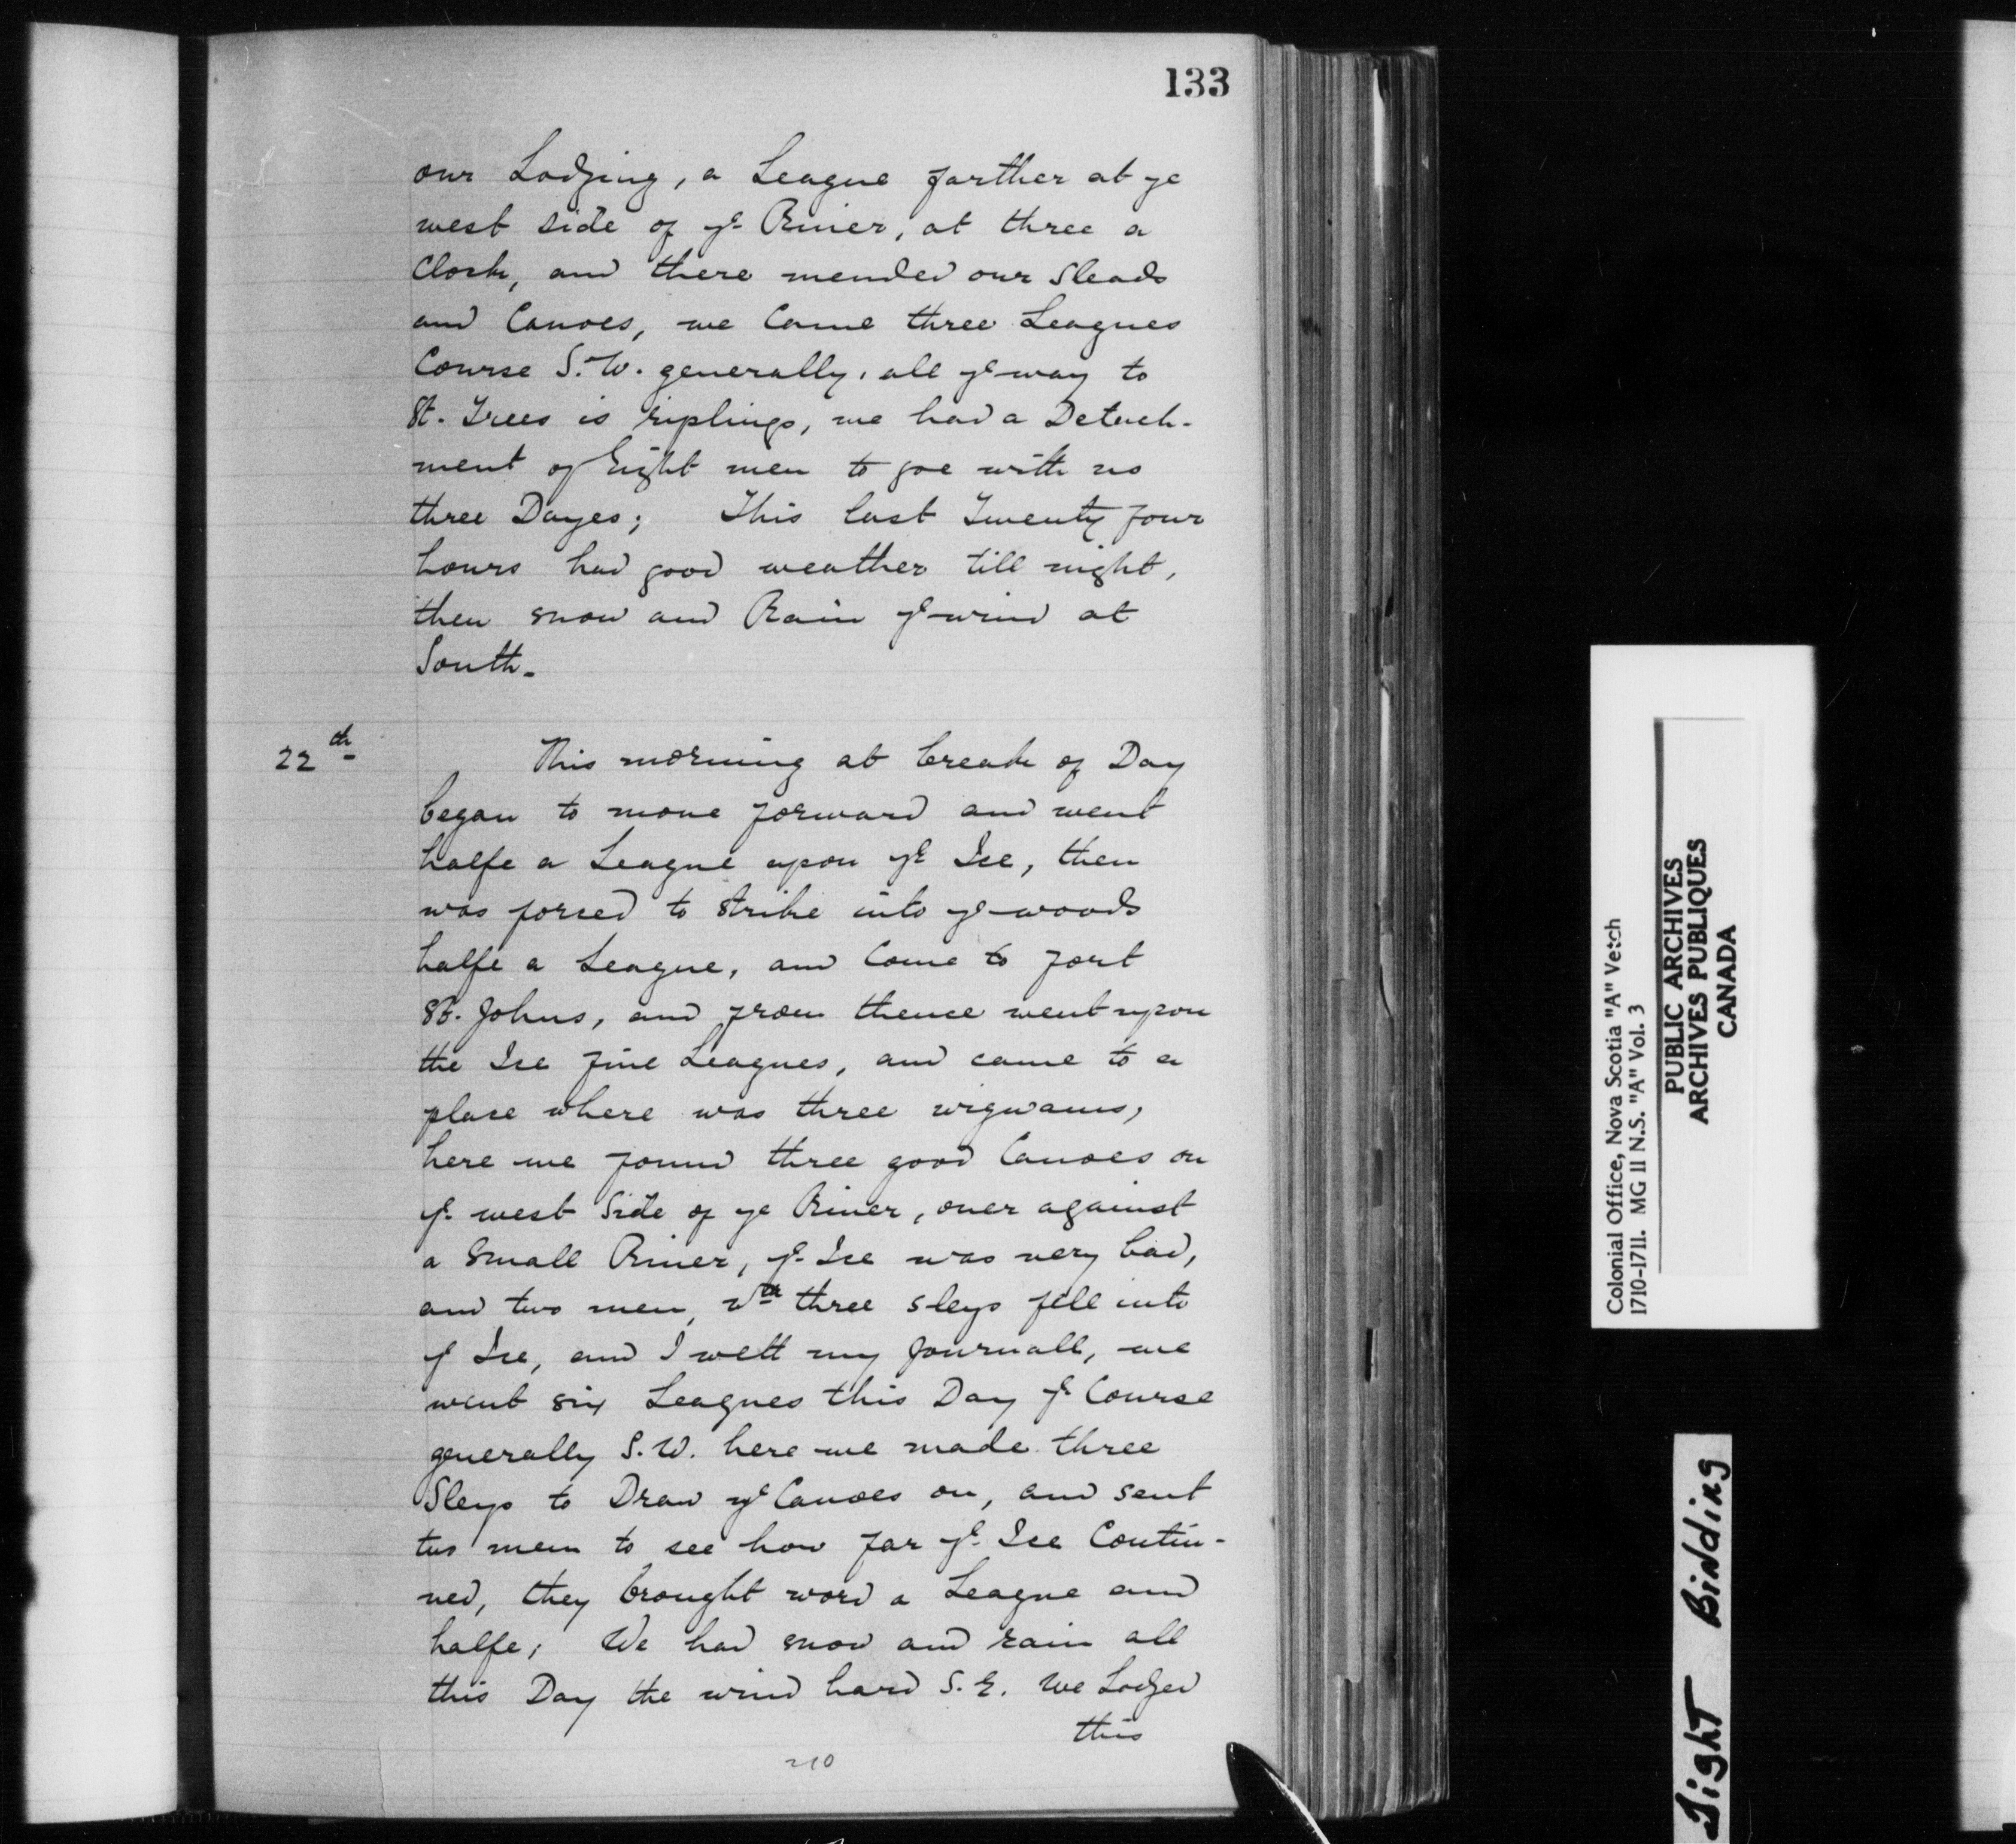 133
our Lodging, a League farther at ye
west side of ye Riuer, at three a
Clock, and there mended our Sleads
and Canoes, we Came three Leagues
Course S.W. generally, all ye way to
St. Trees is riplings, we had a Detach-
ment of Eight men to goe with us
three Dayes; This last Twenty four
hours had good weather till night,
then snow and Rain ye wind at
South.
22th This morning at break of Day
began to moue forward and went
halfe a League upon ye Ice, then
was forced to strike into ye woods
halfe a League, and Came to fort
St. Johns, and from thence went upon
the Ice fiue Leagues, and came to a
place where was three wigwams,
here we found three good Canoes on
ye west Side of ye Riuer, ouer against
a Small Riuer, ye Ice was uery bad,
and two men, wth three sleys fell into
ye Ice, and I wett my Journall, we
went six Leagues this Day ye Course
generally S.W. here we made three
Sleys to Draw ye Canoes on, and sent
two men to see how far ye Ice Contin-
ued, they brought word a League and
halfe; We had snow and rain all
this Day the wind hard S.E. We Lodged
this
210
Colonial Office, Nova Scotia "A" Vetch
1710-1711. MG 11 N.S. "A" Vol. 3
PUBLIC ARCHIVES
ARCHIVES PUBLIQUES
CANADA
Tight Bidding